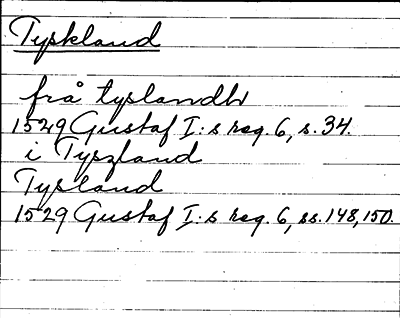 Tyskland
frå tyslandh
1529 Gustaf I:s reg. 6, s. 34.
i Tyszland
Tysland
1529 Gustaf I:s reg. 6, ss. 148, 150.